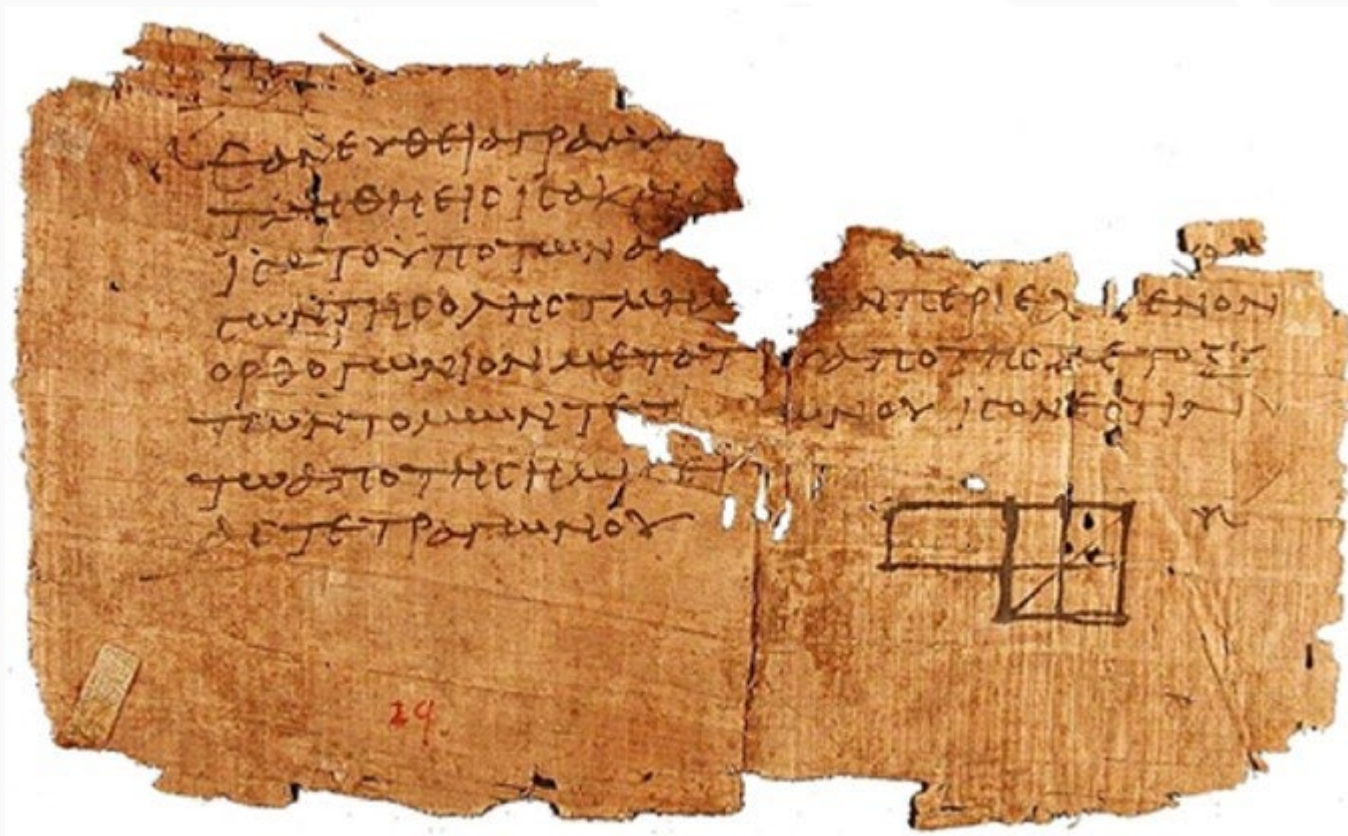 ΕΑΝΕΥΘΕΙΑΓΡΑΜΜ
ΤΜΗΘΗΕΙΣΙΣΑΚΑΙΑ
ΙΣΑΤΟΥΠΟΤΩΝΑ
ΣΩΝΤΗΣΟΛΗΣΤΜΗΜ ΝΠΕΡΙΕΧ ΕΝΟΝ
ΟΡΘΟΓΩΝΙΟΝΜΕΤΟΤ ΑΠΟΤΗΣΜΕΤΟΞΥ
ΤΩΝΤΟΜΩΝΤΕΤ ΩΝΟΥΙΣΟΝΕΣΤΙΝ
ΤΩΑΠΟΤΗΣΗΜΙΣΕΙ
ΑΣΤΕΤΡΑΓΩΝΟΥ
29